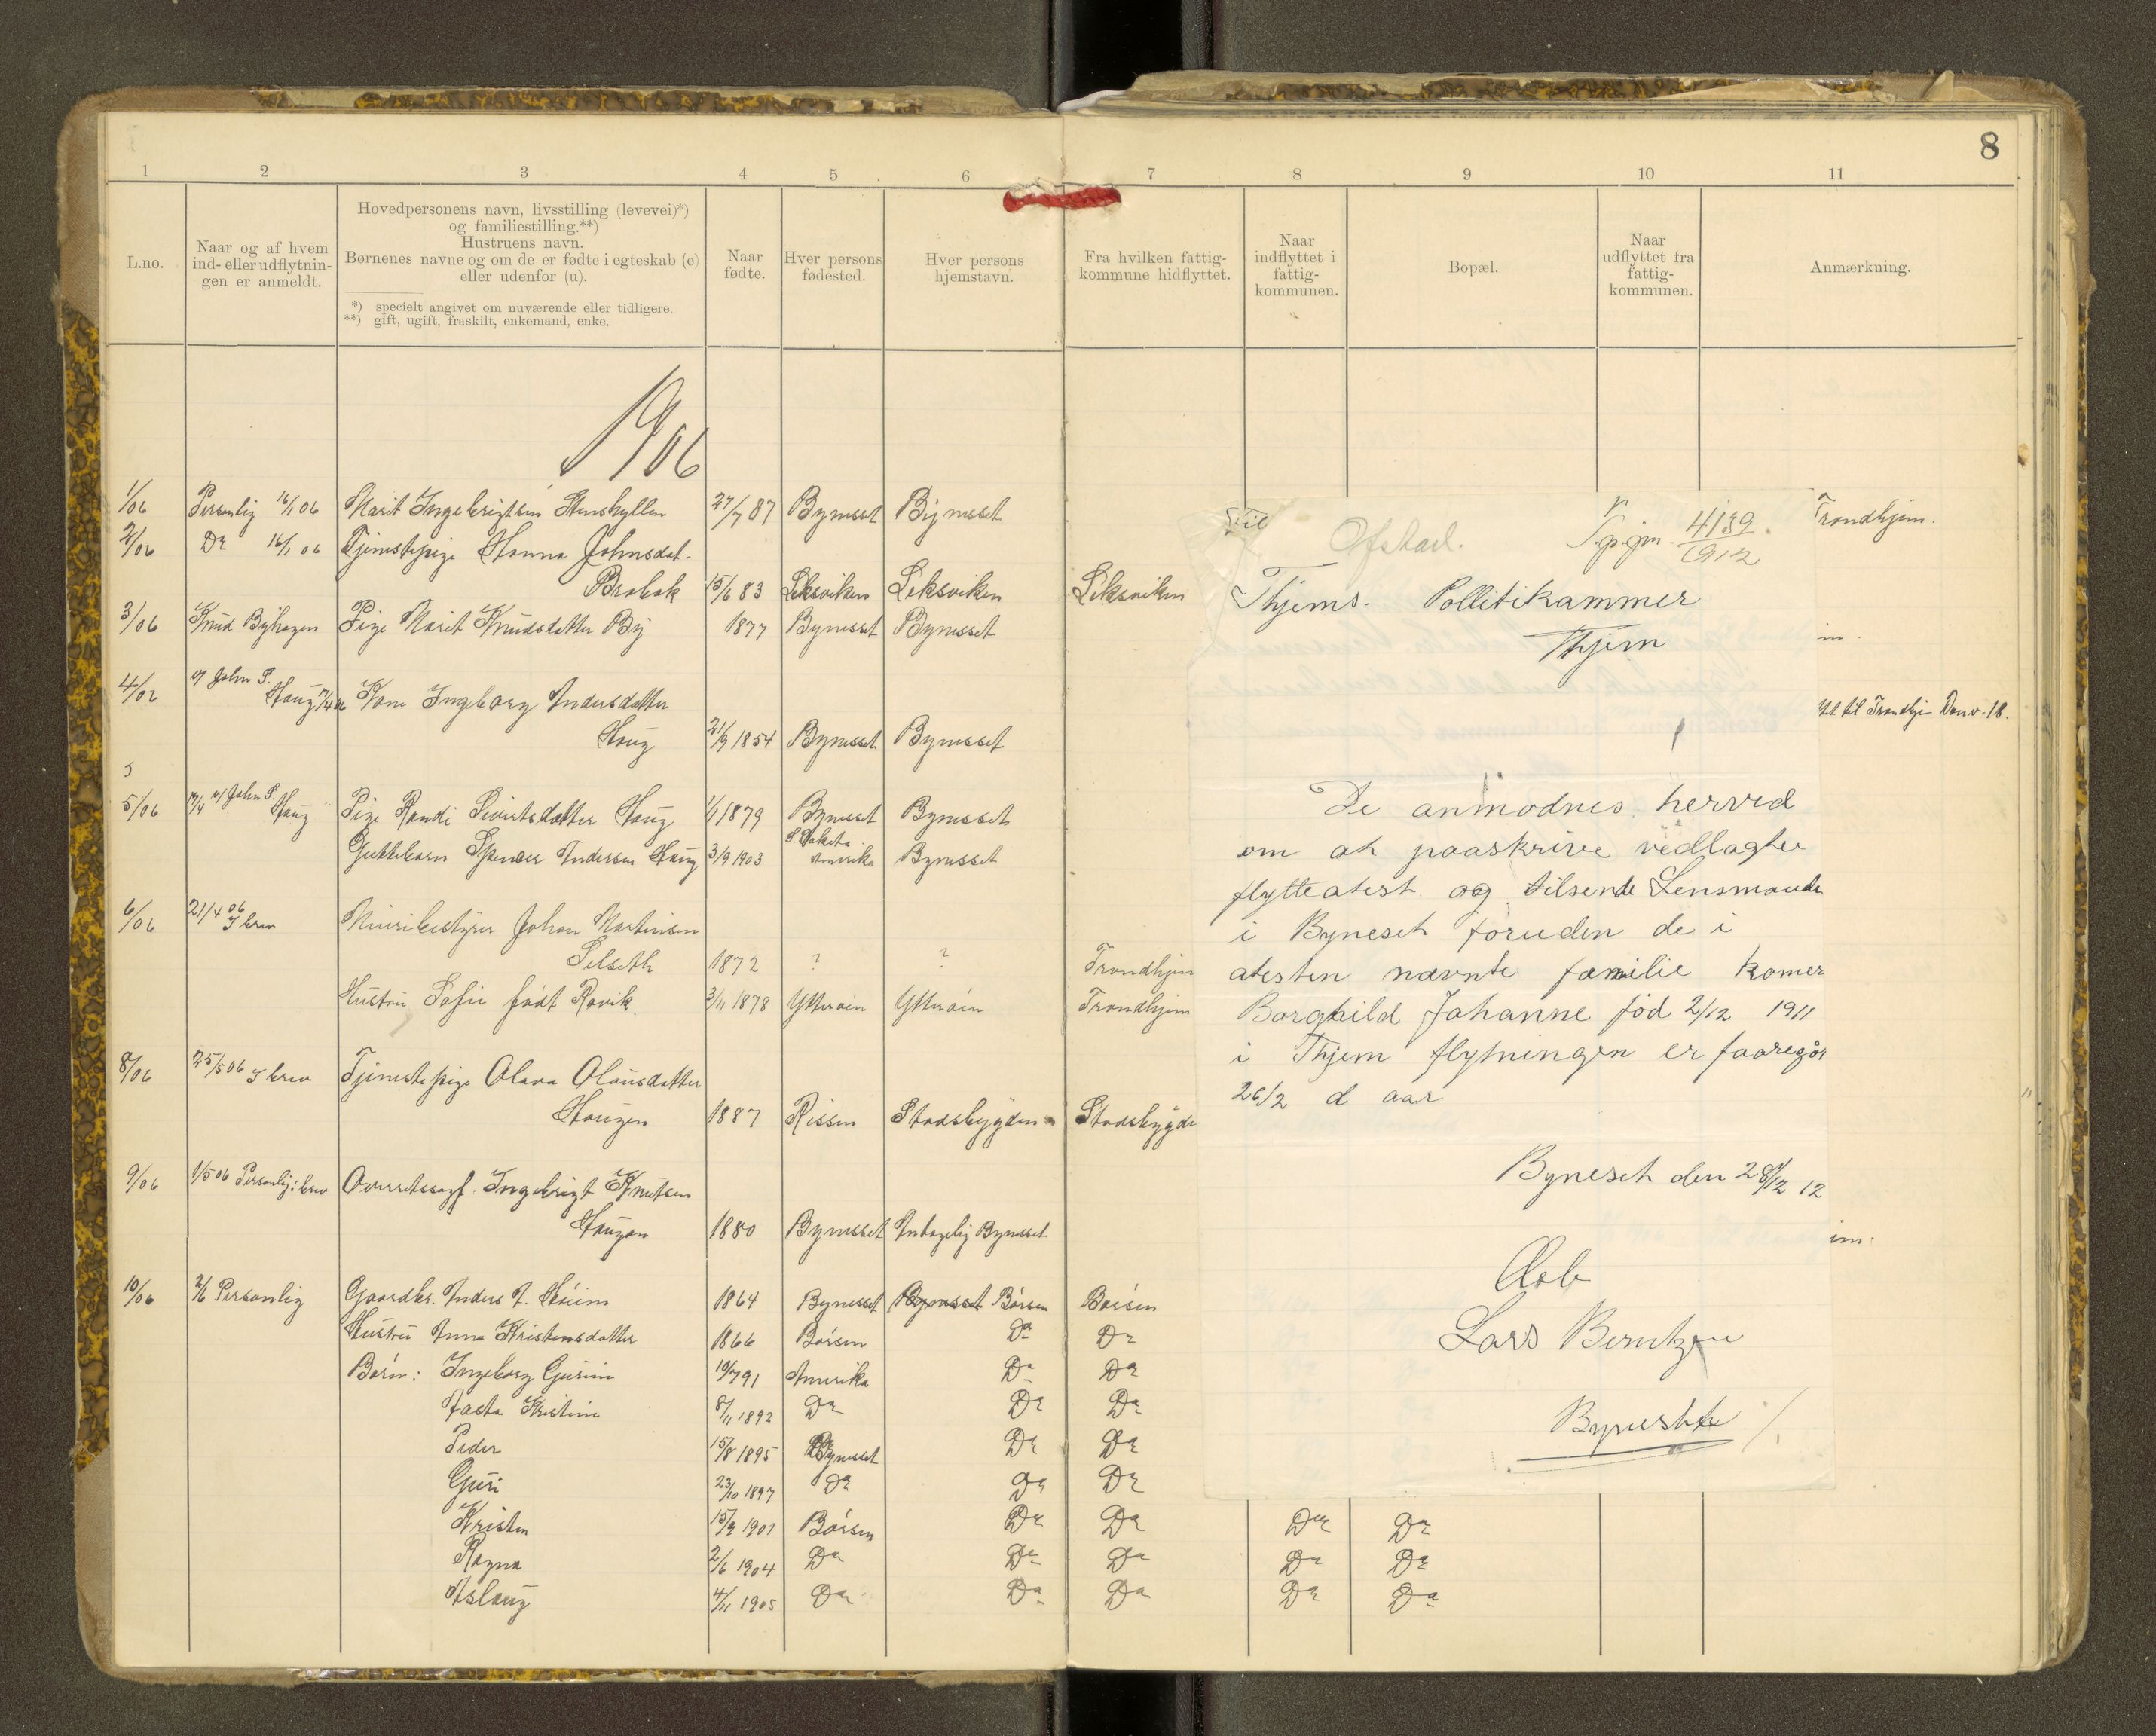 8
1 2 3 4 5 6 7 8 9 10 11
L.no.
Naar og af hvem
ind- eller udflytnin-
gen er anmeldt.
Hovedpersonens navn, livsstilling (levevei)*)
og familiestilling.**)
Hustruens navn.
Børnenes navne og om de er fødte i egteskab (e)
eller udenfor (u).
*) specielt angivet om nuværende eller tidligere.
**) gift, ugift, fraskilt, enkemand, enke.
Naar
fødte.
Hver persons
fødested.
Hver persons
hjemstavn.
Fra hvilken fattig-
kommune hidflyttet.
Naar
indflyttet i
fattig-
kommunen.
Bopæl.
Naar
udflyttet fra
fattig-
kommunen.
Anmærkning.
1906
1/06 Personlig 16/1 06 Marit Ingebrigtsen Stenshyllen 27/7 87 Bynesset Bynesset Trondhjem.
2/06 Do 16/1 06 Tjenestepige Hanna Johnsdat.
Brobak 15/6 83 Leksviken Leksviken Leksviken
3/06 Knud Byhagen Pige Marit Knudsdatter By 1877 Bynesset Bynesset
4/02 v/ John S.
Haug 17/4 06 Kone Ingeborg Andersdatter
Haug 21/9 1854 Bynesset Bynesset
5/06 17/4 v/ John S. Haug Pige Randi Sivertsdatter Haug 1/1 1879 Bynesset Bynesset
Guttebarn Spencer Andersen Haug 3/9 1903 S. Dakota Amerika Bynesset
6/06 21/4 06 I brev Meieribestyrer Johan Martinsen
Selseth 1872 ? ? Trondhjem
Hustru Sofie født Ravik 3/11 1878 Ytterøen Ytterøen Trondhjem
8/06 25/5 06 I brev Tjenestepige Olava Olausdatter
Haugen 1887 Rissen Stadsbygden Stadsbygde
9/06 1/5 06 Personlig i brev Ingebrigt Knutsen
Haugan 1880 Bynesset Antagelig Bynesset
10/06 2/6 Personlig Gaardbr. Anders A. Høiem 1864 Bynesset Bynesset Børsen Børsen
Hustru Anna Kristensdatter 1866 Børsen Do Do
Børn: Ingeborg Gurine 10/7 91 Amerika Do Do
Jasta Kristine 8/11 1892 Do Do Do
Peder 15/8 1895 Bynesset Do Do
Guri 23/10 1897 Do Do Do
Kristen 15/9 1901 Børsen Do Do Do Do
Ragna 2/6 1904 Do Do Do Do Do
Aslaug 4/11 1905 Do Do Do Do Do
Til
Ofstad. 4139
1912
Thjems. Pollitikammer
Thjem
De anmodnes herved
om at paaskrive vedlagte
flytteatest og tilsende Lensmande
i Byneset foruden de i
atesten nævnte familie komer
Borghild Johanne fød 2/12 1911
i Thjem flytningen er faaregåt
26/2 d aar
Byneset den 28/12 12
Lars Berntzen
Byneset